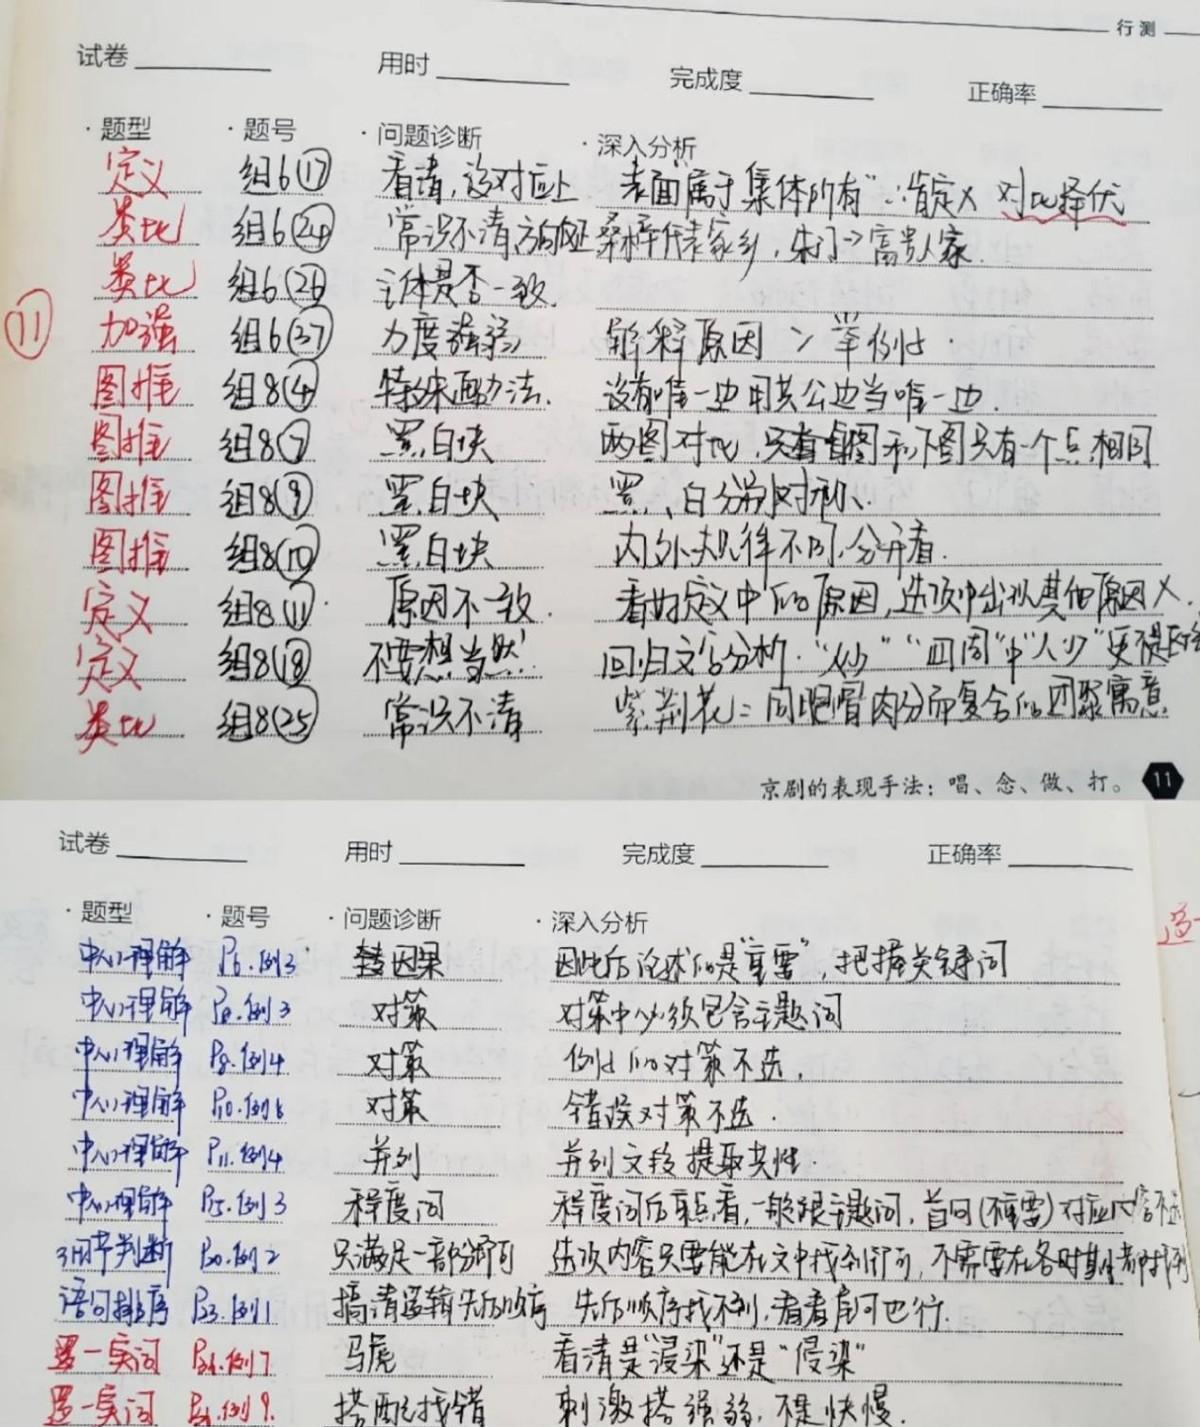 行测
试卷 用时 完成度 正确率
·题型 ·题号 ·问题诊断 ·深入分析
定义 组6⑰ 看清,该对应上 表面"属于集体所有"∴肯定X 对比择优
类比 组6㉔ 常识不清 桑梓代表家乡,朱门→富贵人家.
类比 组6 主体是否一致.
⑪
加强 组6㊲ 力度强弱 解释原因 > 举例子.
图推 组8④ 特殊画力法. 没有唯一边用共公边当唯一边.
图推 组8⑦ 黑白块 两图对比,只有一个点相同
图推 组8⑨ 黑白块 黑、白分别对称、
图推 组8⑩ 黑白块 内外规律不同,分开看.
定义 组8⑪ 原因不一致. 看好定义中的原因,选项中出现其他原因X.
定义 组8⑱ 不要想当然! 回归文字分析."人少" "四周"中"人少"更是
类比 组8㉕ 常识不清 紫荆花=同胞骨肉分而复合的团聚寓意
京剧的表现手法:唱、念、做、打。 11
试卷 用时 完成度 正确率
·题型 ·题号 ·问题诊断 ·深入分析
中心理解 P6.例3 转因果 因此后论述的是"重要",把握关键词
中心理解 P8.例3 对策 对策中必须包含主题词
中心理解 P8.例4 对策 例子的对策不选.
中心理解 P10.例6 对策 错误对策不选.
中心理解 P11.例4 并列 并列文段提取共性.
中心理解 P15.例3 程度词 程度词后重点看,一般跟主题词,首句(不重要)对应内容不选
细节判断 P20.例2 只满足一部分即可 选项内容只要能在文中找到即可,不需要在各时期都找到
语句排序 P23.例1 搞清逻辑先后顺序 先后顺序找不到,看看尾句也行.
置一实词 P34.例7 马虎 看清是"浸染"还是"侵染"
置一实词 例9. 搭配找错 刺激搭强弱,不是快慢.